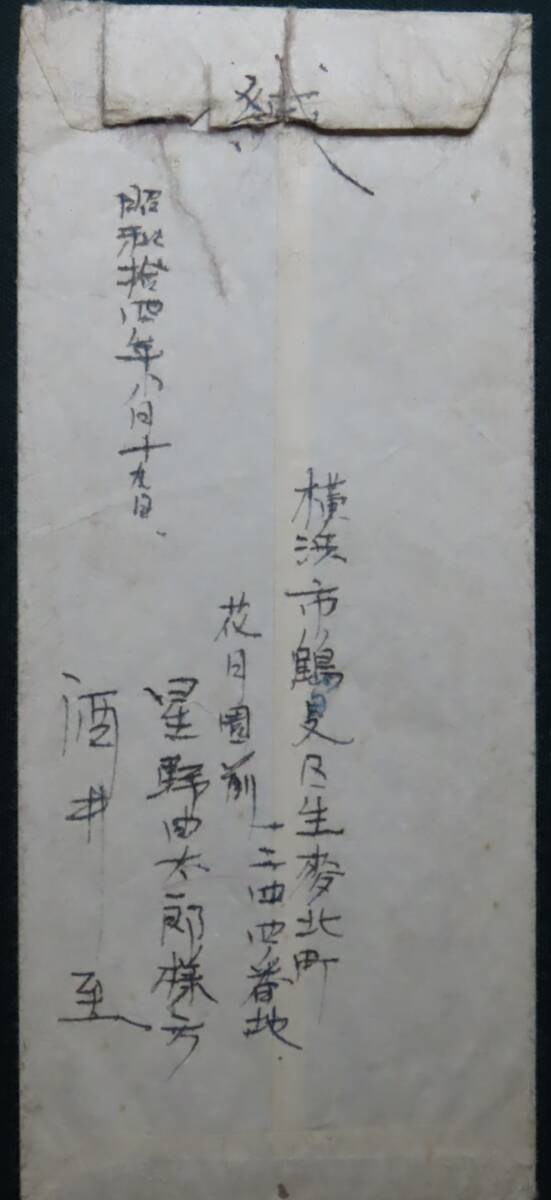 緘
横浜市鶴見区生麦北町
花月園前
一二四四番地
星野由太郎様方
酒井 至
昭和拾四年八月十九日、